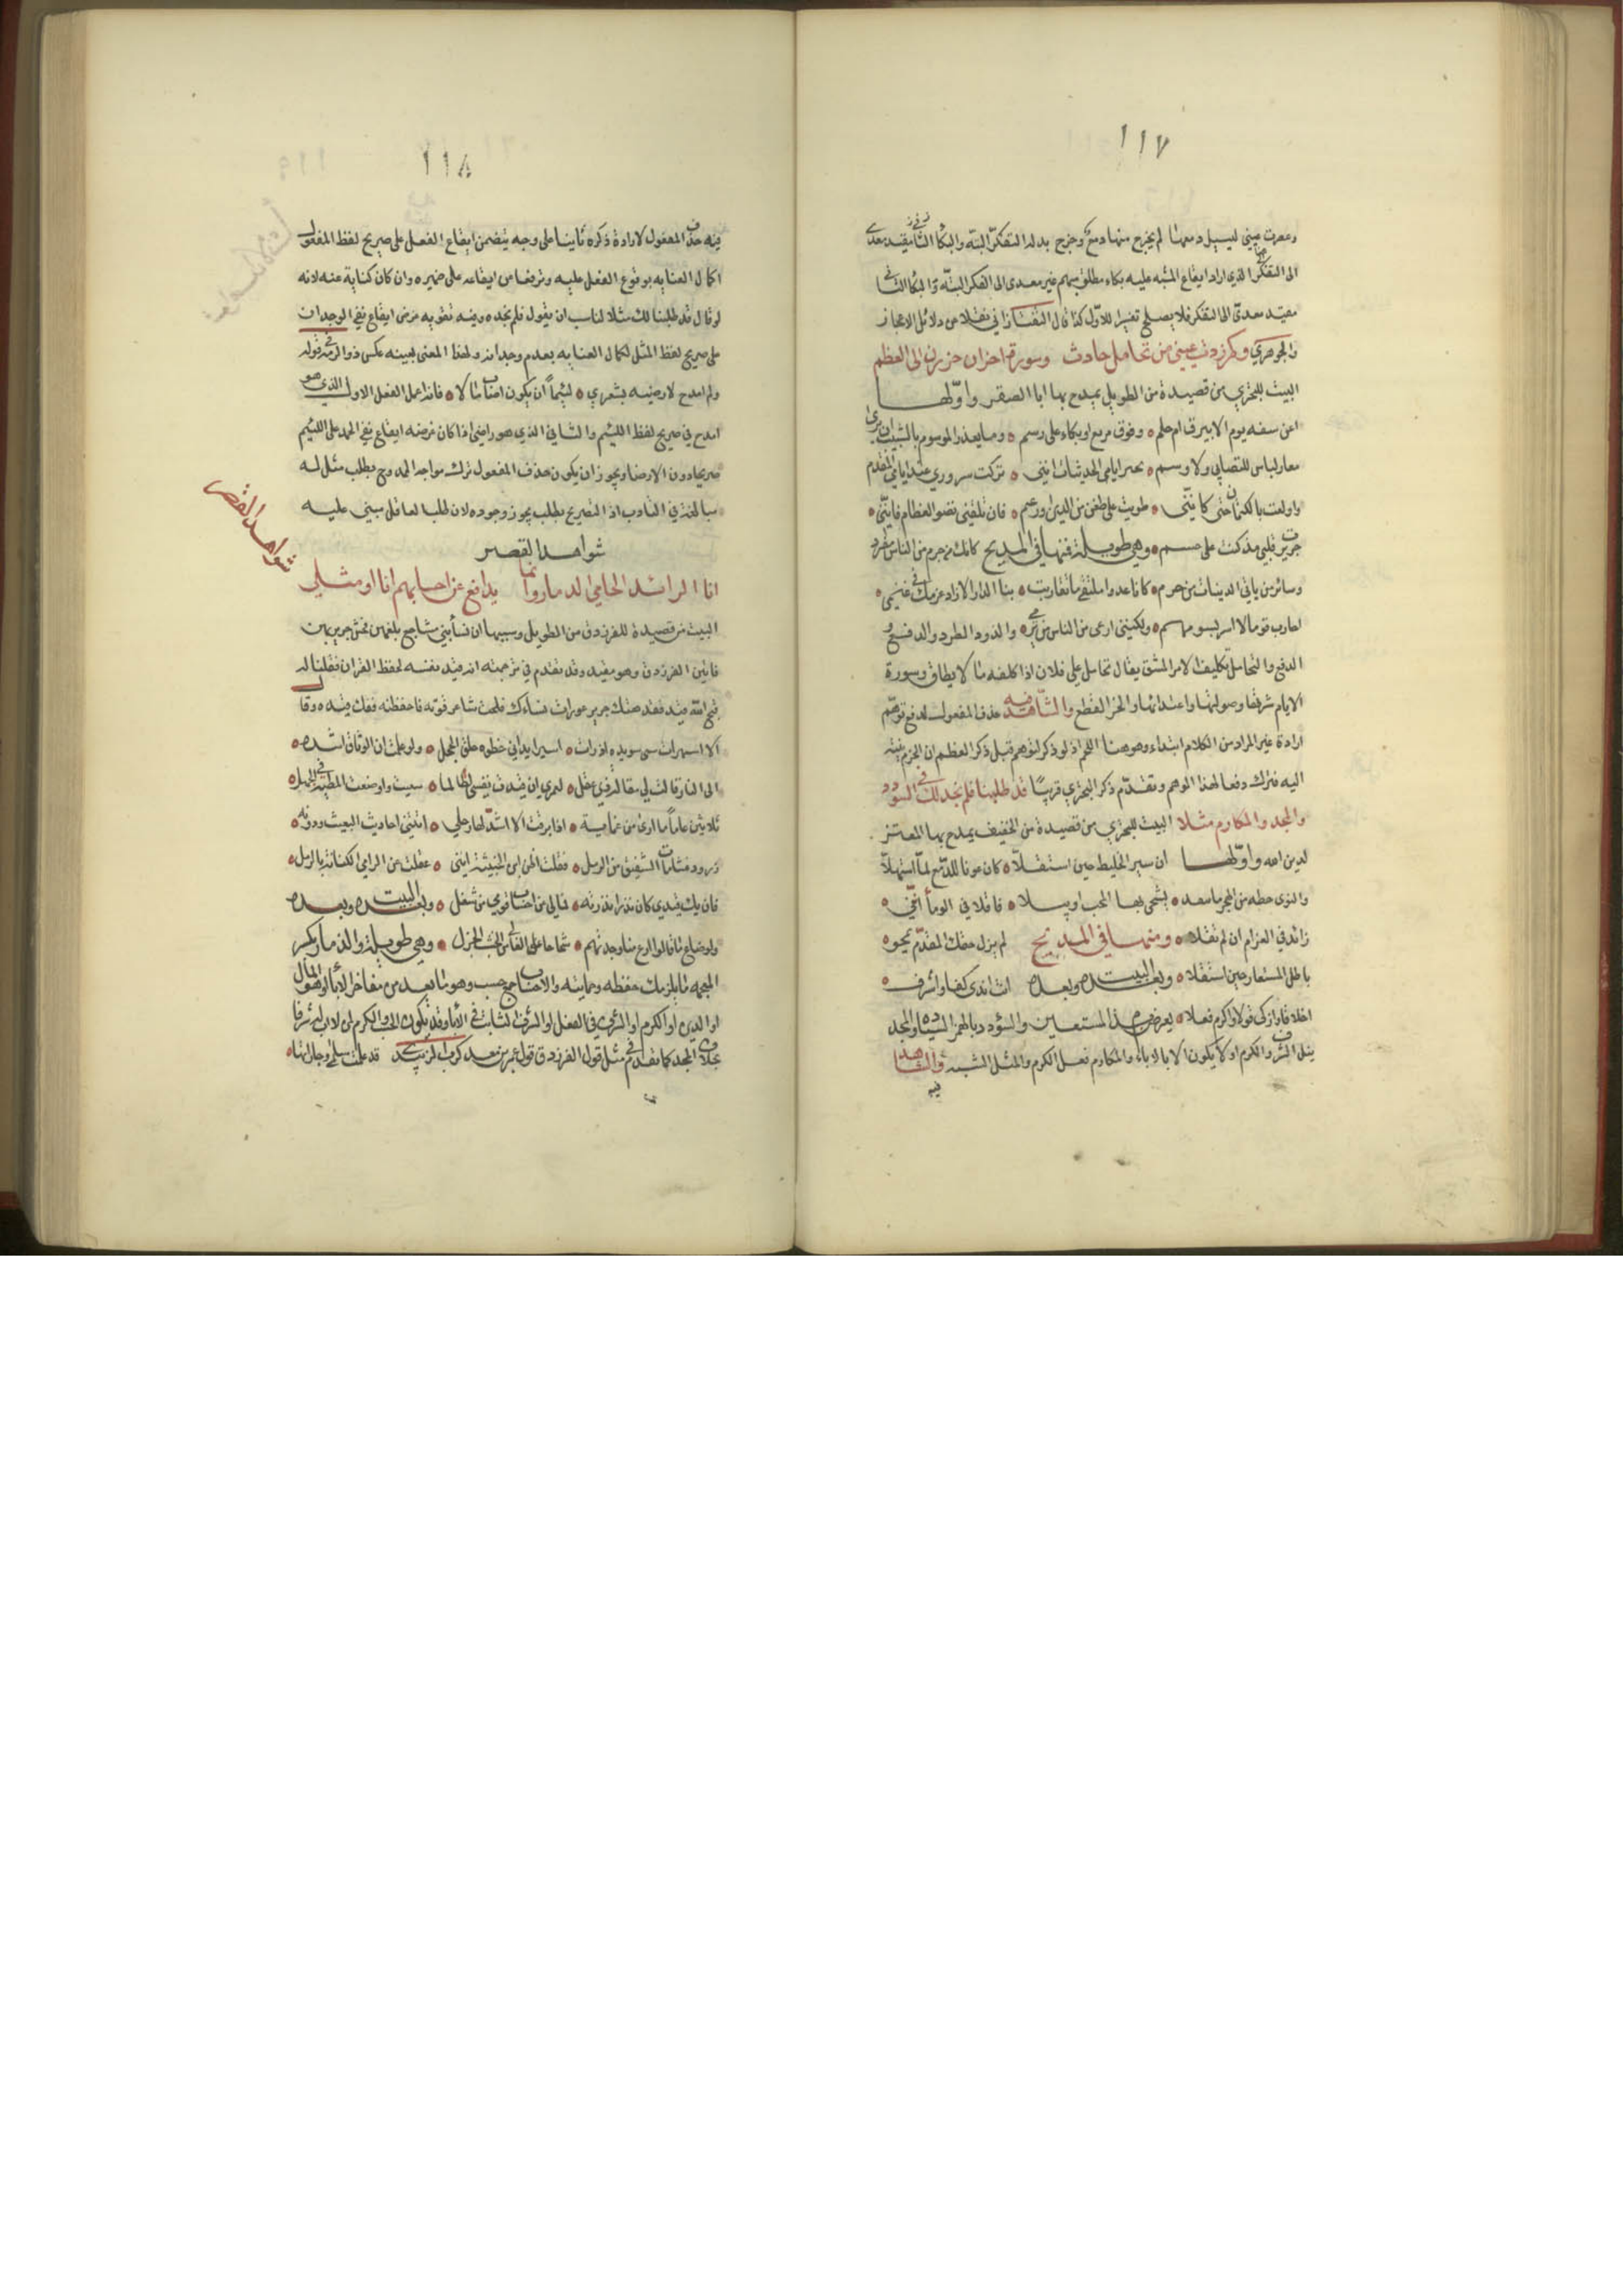 ١١٧
وعصرت عيني ليسيل دمعها لم يخرج منها دمع وخرج بدله التفكر البتة والبكا الثاني مقيد معدى
الى التفكر الذي اراد ايقاع المشبه عليه بكاء مطلق مبهم غير معدى الى الفكر البتة والبكا الثاني
مقيد معدى الى التفكر فلا يصلح تفسيرا للاول كذا قال التفتازاني نقلا من دلائل الاعجاز
والجوهري وكم ذدت عيني من تحامل حادث وسورة احزان حززن الى العظم
البيت للبحتري من قصيدة من الطويل يمدح بها ابا الصقر واولها
اعن سفه يوم الابيرق ام حلم وقوف بربع او بكاء على رسم وما يعذر الموسوم بالشيب ان يرى
معار لباس للتصابي ولا وسم تخبر ايامي الحديثات انني تركت سروري عند ايامي القدم
واولعت بالكتمان حتى كانني طويت على ضغن من الدين او رغم فان تلقني نضو العظام فانني
جريرة قلبي مذ كنت على جسم وهي طويلة فمنها في المديح كانك من جرم من الناس مفرد
وسائر من ياتي الدنيات من جرم
احارب قوما لا اسر بسوءهم ولكنني ارمي من الناس من ترمي والذود الطرد والدفع و
الدفع والتحامل تكليف الامر المشق يقال تحامل على فلان اذا كلفه ما لا يطاق وسورة
الايام شرفها وصولتها واعتدائها والحز القطع والشاهد فيه حذف المفعول لدفع توهم
ارادة غير المراد من الكلام ابتداء وهو هنا اللحم اذ لو ذكر لتوهم قبل ذكر العظم ان الحز لم ينته
اليه فترك دفعا لهذا الوهم وتقدم ذكر البحتري قريبا قد طلبنا فلم نجد لك في السودد
والمجد والمكارم مثلا البيت للبحتري من قصيدة من الخفيف يمدح بها المعتز
لدين الله واولها ان سير الخليط حين استقلا كان عونا للدمع لما استهلا
والنوى خطة من الهجر ما ينفك يشجى بها المحب ويبلى فاقلا في اللوم انني
زائد في الغرام ان لم تقلا ومنها في المديح لم يزل حقك المقدم يمحو
باطل المستعار حين استقلا وبعد البيت وبعده انت اندى كفا واشرف
اخلاقا وازكى قولا واكرم فعلا يعرض هذا المستعين والسودد بالهمز السيادة والمجد
نيل الشرف والكرم او لا يكون الا بالاباء والمكارم فعل الكرم والمثل الشبه والشاهد
فيه
١١٨
فيه حذف المفعول لارادة ذكره ثانيا على وجه يتضمن ايقاع الفعل على صريح لفظ المفعول
اكمال العناية بوقوع الفعل عليه وترفعا من ايقاعه على ضميره وان كان كناية عنه لانه
لو قال قد طلبنا لك مثلا لناسب ان يقول فلم نجده وفيه تفويت غرض ايقاع نفي الوجدان
على صريح لفظ المثل لكمال العناية بعدم وجدانه ولهذا المعنى بعينه عكس ذو الرمة في قوله
ولم امدح لارضيه بشعري لئيما ان يكون اصاب مالا فانه اعمل الفعل الاول الذي هو
امدح في صريح لفظ اللئيم والثاني الذي هو ارضى اذ كان غرضه ايقاع نفي المدح على اللئيم
صريحا دون الارضا ويجوز ان يكون حذف المفعول ترك مواجه الممدوح بطلب مثل له
مبالغة في التادب اذ التصريح بطلب يجوز وجوده لان طلب العاقل مبني عليه
شواهد القصر
شواهد القصر
انا الرائد الحامي الذمار وانما يدافع عن احسابهم انا او مثلي
البيت من قصيدة للفرزدق من الطويل وسببها ان نساء بني مجاشع بلغهن فحش جرير بهن
فاتين الفرزدق وهو مقيد وقد تقدم في ترجمته انه قيد نفسه لحفظ القران فقلنا له
قبح الله قيدك فقد هتك جرير عورات نسائك فلحيت شاعر قوم فاحفظنه ففك قيده وقال
الا استهزات مني سويدة ان رات اسيرا يداني خطوه حلق الحجل ولو علمت ان الوثاق اشده
الى النار قالت لي مقالة ذي عقل لعمري ان قيدت نفسي لطالما سعيت واوضعت المطية في الجهل
ثلاثين عاما ما ارى من عماية اذا برقت الا اشد لها رحلي اتتني احاديث البعيث ودونه
زرود فشامات الشقيق من الرمل فقلت اظن ابن الخبيثة انني غفلت عن الرامي الكنانة بالنبل
فان يك قيدي كان نذرا نذرته فمالي عن احساب قومي من شغل وبعد البيت وبعده
ولو ضاع ما قالوا ارع منا وجدتهم شحاحا على الغالي من الحسب الجزل وهي طويلة والذمار بكسر
المعجمة ما يلزمك حفظه وحمايته والاحساب جمع حسب وهو ما يعد من مفاخر الاباء او هو المال
او الدين او الكرم او الشرف في الفعل او الشرف الثابت في الاباء وقد يكون الحسب والكرم لمن لا اب له شرفا
بخلاف المجد كما تقدم في مثل قول الفرزدق قول عمرو بن معد يكرب الزبيدي قد علمت سلمى وجاراتها